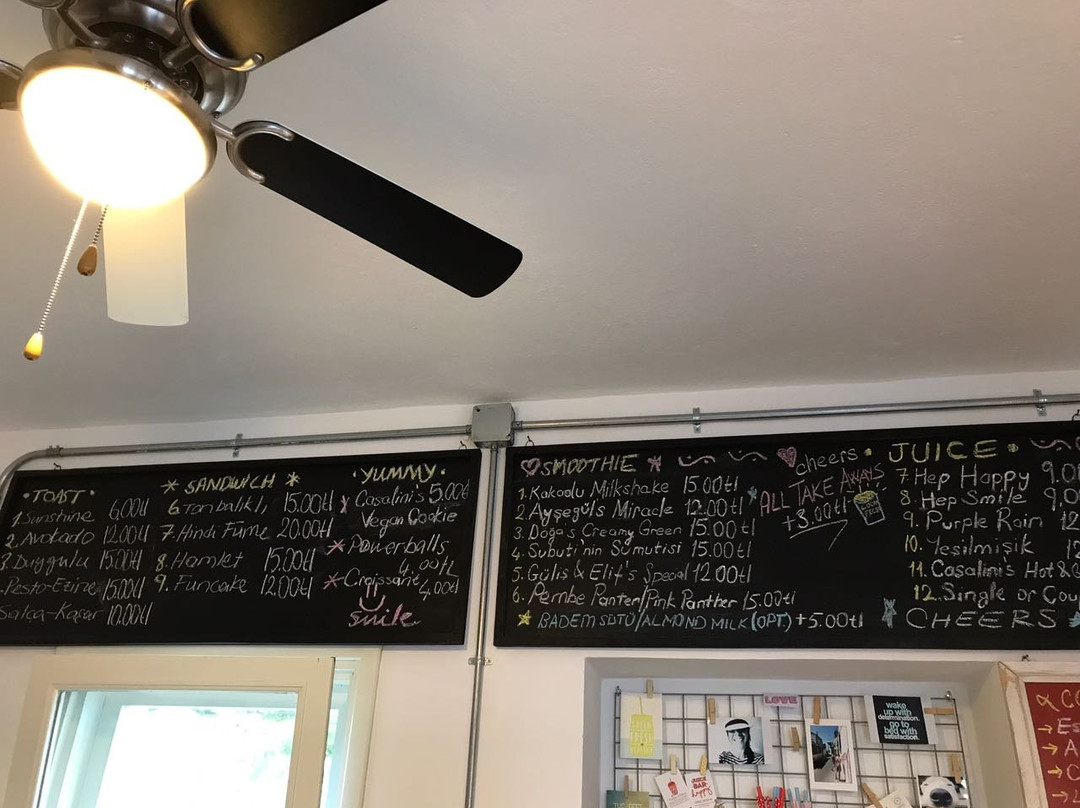 TOAST
1. Sunshine 6.00tl
2. Avokado 12.00tl
3. Duygulu 15.00tl
Pesto-Ezine 15.00tl
Salça-Kaşar 10.00tl
SANDWICH
6. Ton balıklı 15.00tl
7. Hindi Füme 20.00tl
8. Hamlet 15.00tl
9. Funcake 12.00tl
YUMMY
Casalini's 5.00tl
Vegan Cookie
Powerballs
4.00tl
Croissant 4.00tl
Smile
SMOOTHIE
1. Kakaolu Milkshake 15.00tl
2. Ayşegül's Miracle 12.00tl
3. Doğa's Creamy Green 15.00tl
4. Subuti'nin Sumutisi 15.00tl
5. Güliş & Elif's Special 12.00tl
6. Pembe Panter/Pink Panther 15.00tl
BADEM SÜTÜ/ALMOND MILK (OPT) +5.00tl
cheers
ALL TAKE AWAYS
+3.00tl
JUICE
7. Hep Happy 9.0
8. Hep Smile 9.0
9. Purple Rain 12
10. Yeşilmişik 12
11. Casalini's Hot &
12. Single or Cou
CHEERS
LOVE
wake
up with
determination.
go to
bed with
satisfaction.
JUICE
BAR